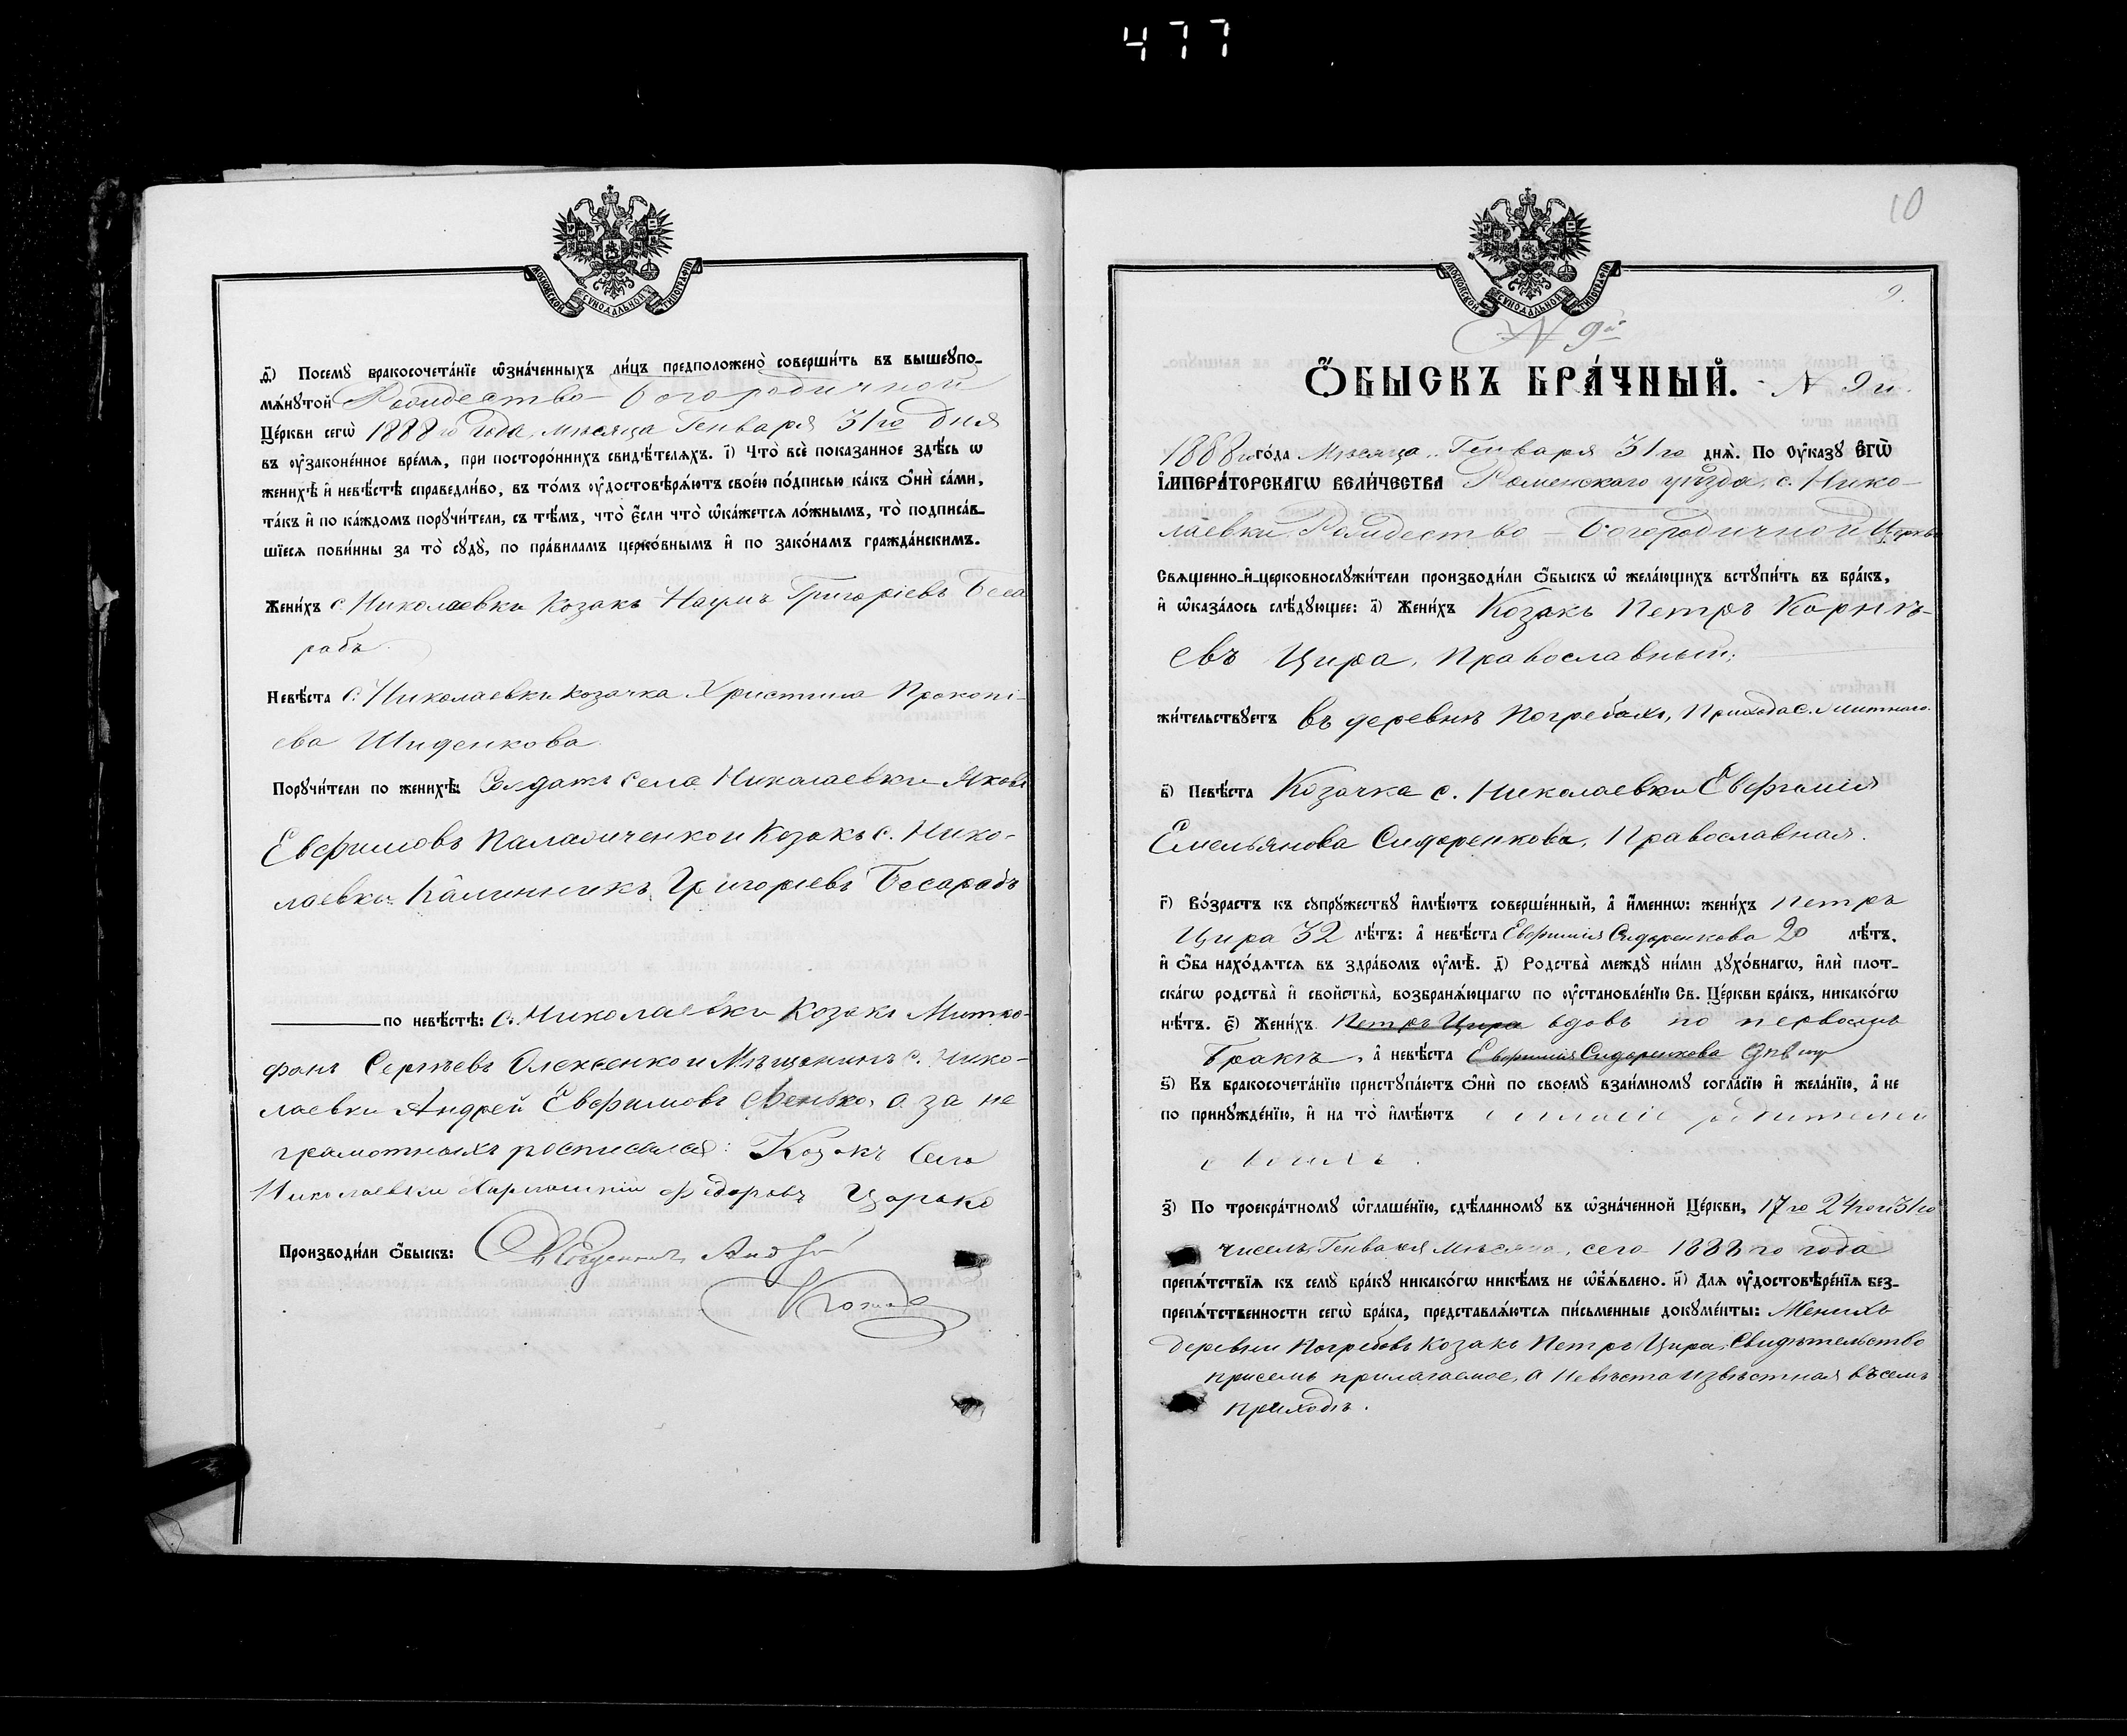 477
МОСКОВСКОЙ СѴНОДАЛЬНОЙ ТИПОГРАФІИ
д҃і) Посемꙋ̀ бракосочета́нїе ѡ҆зна́ченныхъ ли́цъ предположено̀ соверши́ть въ вышеꙋпо-
мѧ́нꙋтой Рождество-Богородичной
Це́ркви сегѡ̀ 1888 го года, мѣсяца Генваря 31го дня
въ ᲂу҆законе́нное вре́мѧ, при посторо́ннихъ свидѣ́телѧхъ. і҃) Что̀ всѐ показанное здѣ́сь ѡ
женихѣ̀ и҆ невѣ́стѣ справедли́во, въ то́мъ ᲂу҆достовѣрѧ́ютъ свое́ю по́дписью ка́къ ѻ҆нѝ са́ми,
та́къ и҆ по ка́ждомъ порꙋчи́тели, съ тѣ́мъ, что̀ є҆́сли что̀ ѡ҆ка́жетсѧ ло́жнымъ, то̀ подписа́в-
шїесѧ пови́нны за то̀ сꙋдꙋ̀, по пра́виламъ церко́внымъ и҆ по зако́намъ гражда́нскимъ.
Жени́хъ с. Николаевки Козакъ Наумъ Григоріевъ Беса
рабъ
Невѣ́ста с. Николаевки козачка Христина Прокопі-
ева Шиденкова.
Порꙋчи́тели по женихѣ̀: Солдатъ села Николаевки Яковъ
Евфимовъ Паламаренко и Козакъ с. Нико-
лаевки Калинникъ Григоріевъ Бесарабъ
по невѣ́стѣ: с. Николаевки Козакъ Митро-
фанъ Сергѣевъ Олексенко и Мѣщанинъ с. Нико-
лаевки Андрей Евфимовъ Сѣенько, а за не
грамотныхъ росписался: Козакъ села
Николаевки Харлампій Федоровъ Царько
Производи́ли ѻ҆́быскъ: Священникъ
10
9.
№ 9й
МОСКОВСКОЙ СѴНОДАЛЬНОЙ ТИПОГРАФІИ
Ѻ҆́БЫСКЪ БРА́ЧНЫЙ. - № 9й.
1888 го го́да Мѣсяца Генваря 31го днѧ̀. По Оу҆ка́зꙋ Є҆ГѠ̀
І҆МПЕРА́ТОРСКАГѠ ВЕЛИ́ЧЕСТВА Роменскаго уѣзда, с. Нико-
лаевки, Рождество-Богородичной Церкви
Свѧщенно-и҆-церковнослꙋжи́тели производи́ли ѻ҆́быскъ ѡ҆ жела́ющихъ встꙋпи́ть въ бра́къ,
и҆ ѡ҆каза́лось слѣ́дꙋющее: а҃) Жени́хъ Козакъ Петръ Корнѣ-
евъ Цира, Православный;
жи́тельствꙋетъ въ деревнѣ Погребахъ, Прихода с.
в҃) Невѣ́ста Козачка с. Николаевки Евфимія
Емельянова Сидоренкова, Православная.
г҃) Во́зрастъ къ сꙋпрꙋ́жествꙋ и҆мѣ́ютъ соверше́нный, а҆ и҆́меннѡ: жени́хъ Петръ
Цира 32 лѣ́тъ: а҆ невѣ́ста Евфимія Сидоренкова 20 лѣ́тъ.
и҆ ѻ҆́ба нахо́дѧтсѧ въ здра́вомъ ᲂу҆мѣ̀. д҃) Родства̀ междꙋ̀ ни́ми дꙋхо́внагѡ, и҆лѝ плот-
ска́гѡ родства̀ и҆ свойства̀, возбранѧ́ющагѡ по ᲂу҆становле́нїю Св. Це́ркви бра́къ, никако́гѡ
нѣ́тъ. є҃) Жени́хъ Петръ Цира вдовъ по первомъ
Бракѣ, а҆ невѣ́ста Евфимія Сидоренкова дѣвица
ѕ҃) Къ бракосочета́нїю пристꙋпа́ютъ ѻ҆нѝ по своемꙋ̀ взаи́мномꙋ согла́сїю и҆ жела́нїю, а҆ не
по принꙋжде́нїю, и҆ на то̀ и҆мѣ́ютъ согласіе родителей
своихъ.
з҃) По троекра́тномꙋ ѡ҆глаше́нїю, сдѣ́ланномꙋ въ ѡ҆зна́ченной Це́ркви, 17го 24го и 31го
чиселъ Генваря мѣсяца, сего 1888 го года
препѧ́тствїѧ къ семꙋ̀ бра́кꙋ никако́гѡ никѣ́мъ не ѡ҆б̾ѧ́влено. и҃) Длѧ ᲂу҆достовѣре́нїѧ без-
препѧ́тственности сегѡ̀ бра́ка, представлѧ́ютсѧ пи́сьменные докꙋме́нты: Женихъ
деревни Погребовъ Козакъ Петръ Цира, Свидѣтельство
присемъ прилагаемое, а Невѣста извѣстная въ семъ
приходѣ.